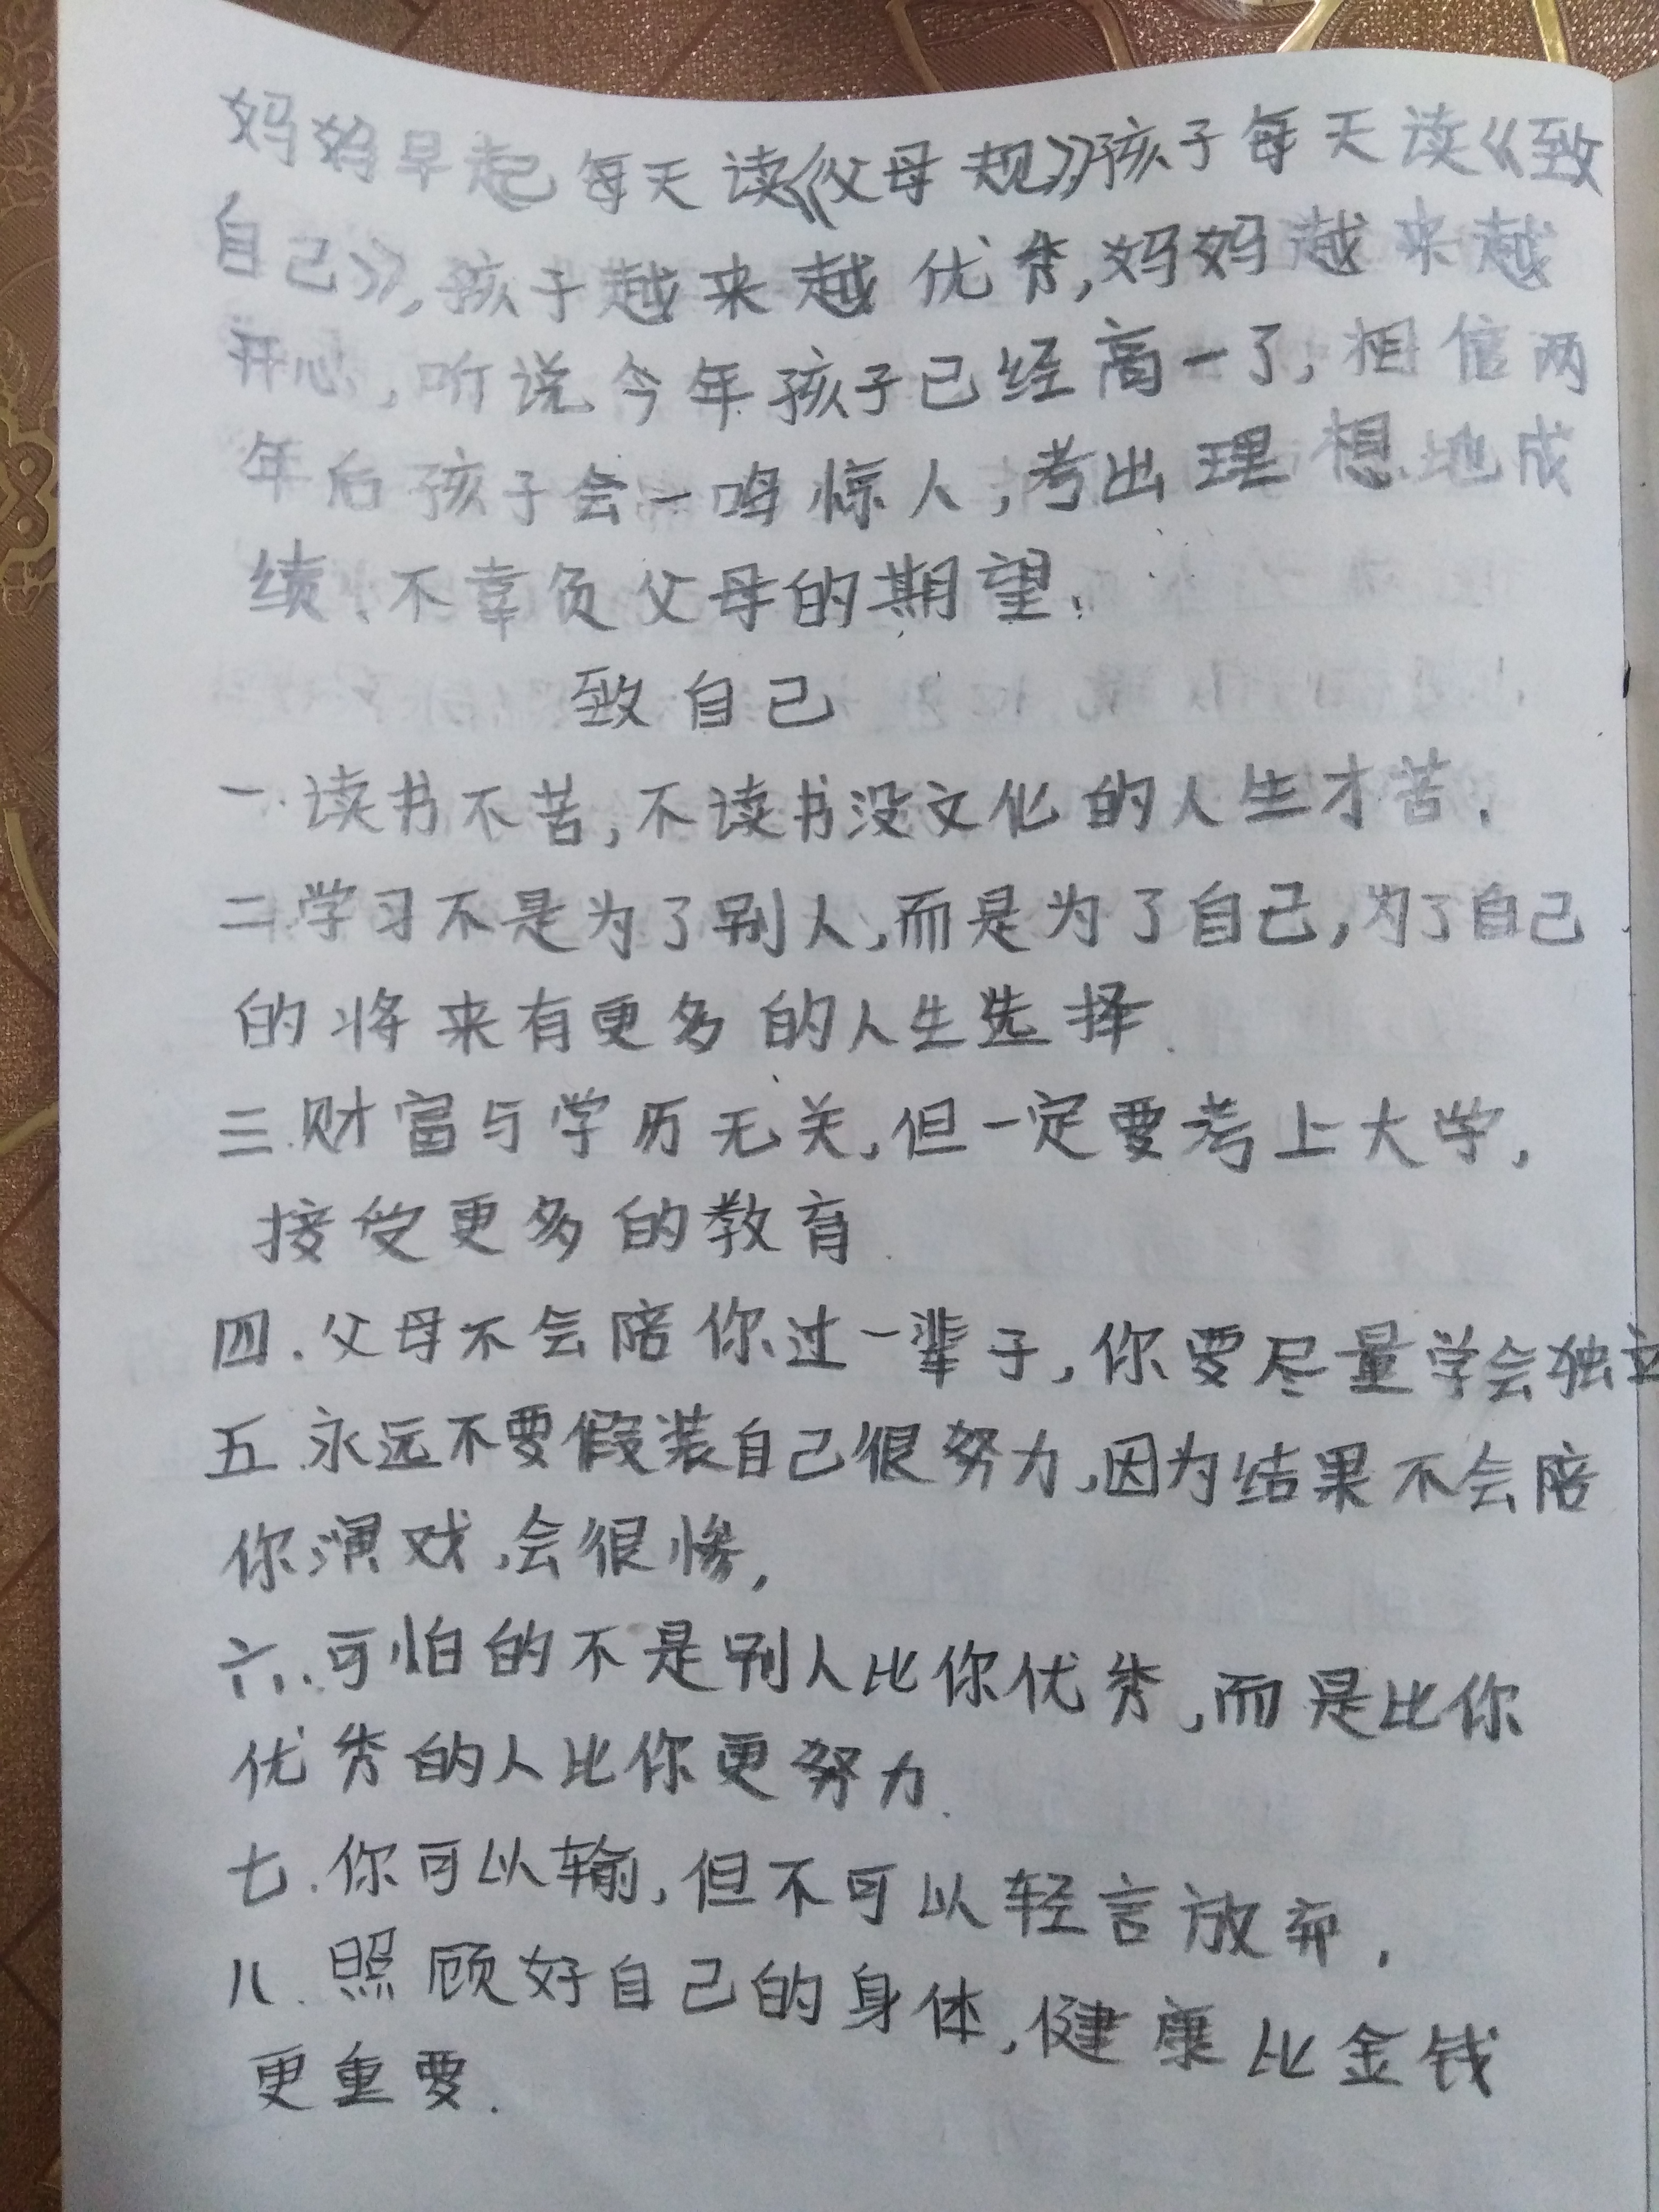 妈妈早起每天读《父母规》孩子每天读《致
自己》,孩子越来越优秀,妈妈越来越
开心,听说今年孩子已经高一了,相信两
年后孩子会一鸣惊人,考出理想地成
绩、不辜负父母的期望.
致自己
一.读书不苦,不读书没文化的人生才苦.
二学习不是为了别人,而是为了自己,为了自己
的将来有更多的人生选择.
三.财富与学历无关,但一定要考上大学,
接受更多的教育.
四.父母不会陪你过一辈子,你要尽量学会独立
五.永远不要假装自己很努力,因为结果不会陪
你演戏,会很惨,
六.可怕的不是别人比你优秀,而是比你
优秀的人比你更努力.
七.你可以输,但不可以轻言放弃.
八.照顾好自己的身体,健康比金钱
更重要.